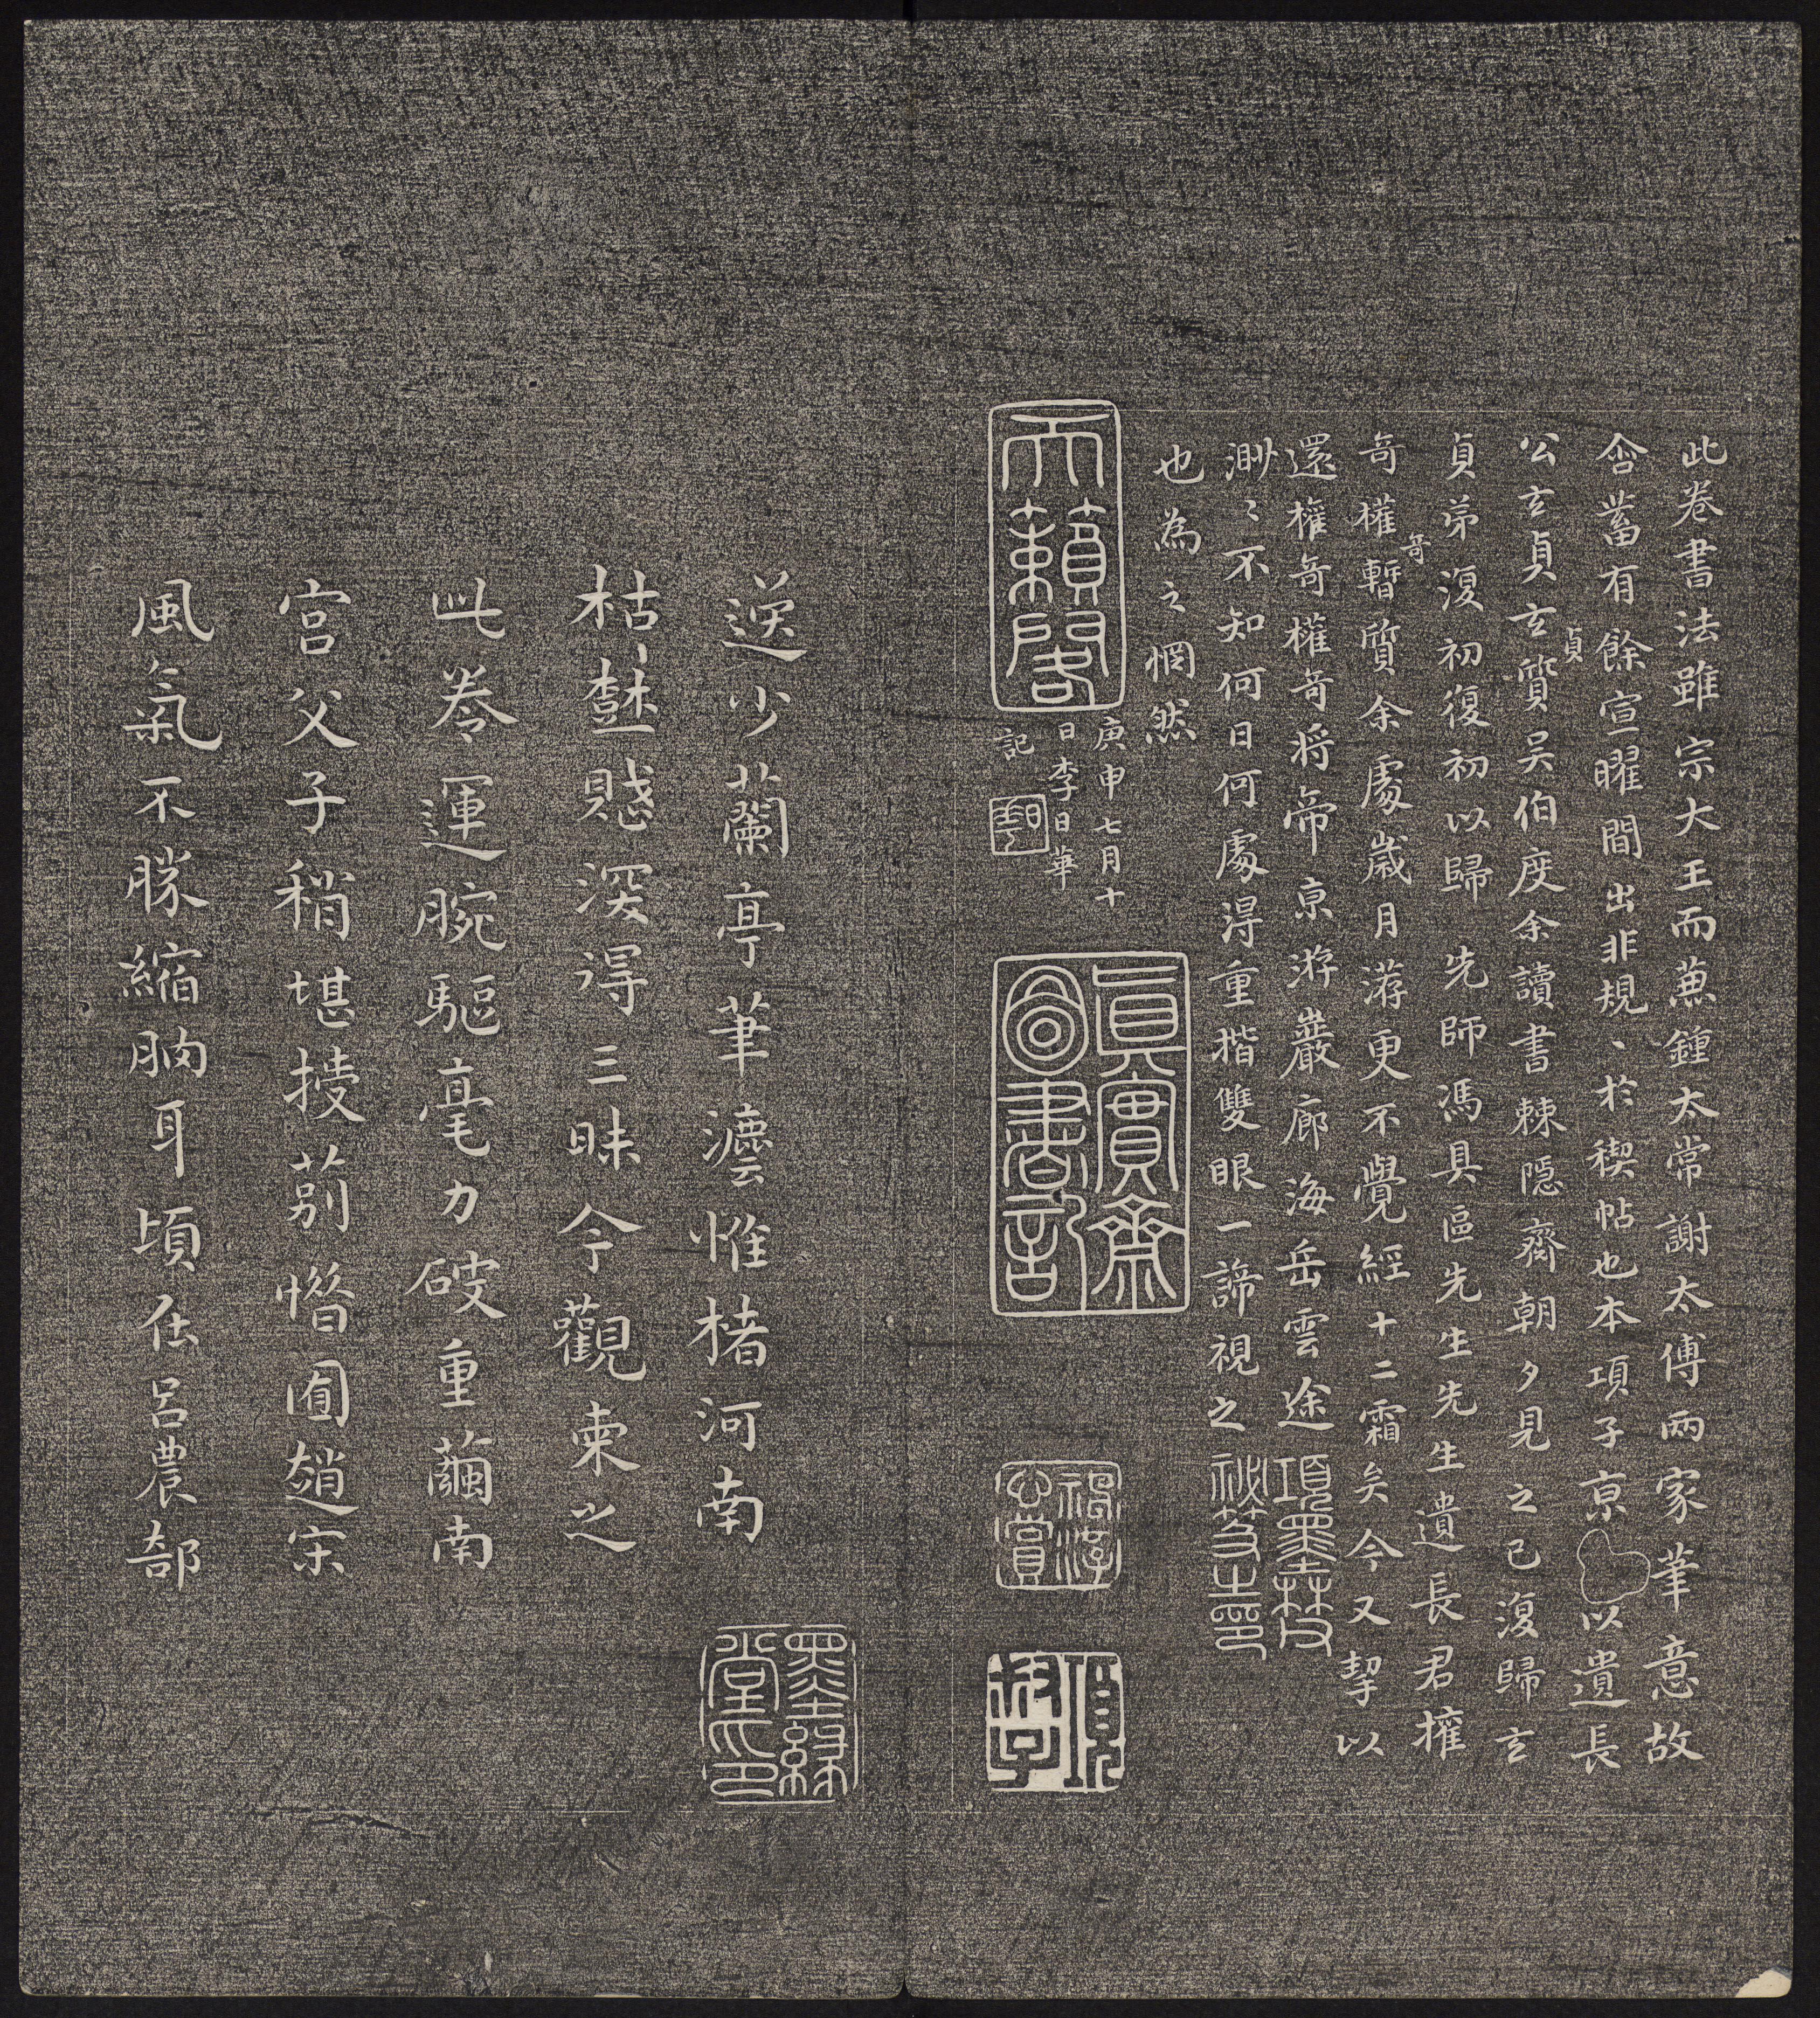 此卷書法雖宗大王而兼鍾太常謝太傅兩家筆意故
含蓄有餘宣曜間出非規、於稧帖也本項子京以遺長
公玄貞玄貞質吴伯度余讀書棘隱齋朝夕見之已復歸玄
貞弟復初復初以歸先師馮具區先生先生遺長君權
奇權奇暫質余處歲月游更不覺經十二霜矣今又挈以
還權奇權奇將帝京游巖廊海岳雲途
項墨林
渺〻不知何日何處得重揩雙眼一諦視之
秘笈之印
也為之惘然
庚申七月十
日李日華
記
天籟閣
真實齋
圖書記
逸少蘭亭筆灋惟楮河南
墨緣堂印
枯深得三昧今觀柬之
此卷運腕驅毫力破重繭南
宮父子稍堪惜囿趙宋
風氣不勝縮朒耳頃在呂農部